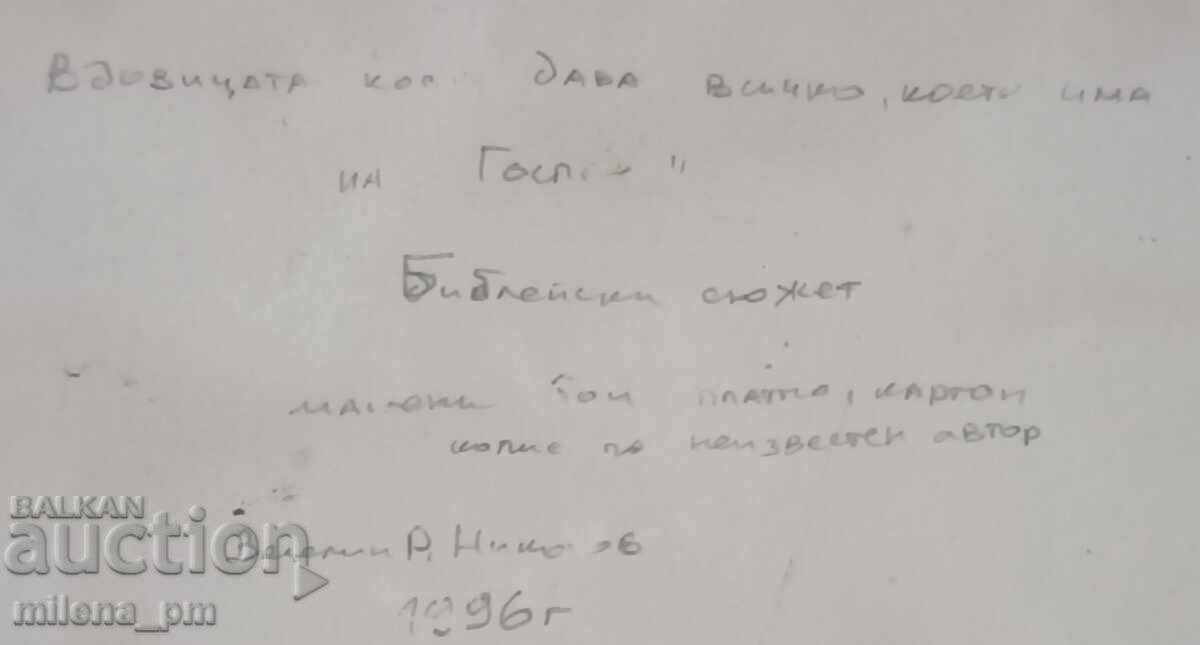 Вдовицата която дава всичко, което има
на Господ"
Библейски сюжет
маслени бои платно, картон
копие по неизвестен автор
Р. Николов
1996 г
BALKAN
auction
milena_pm